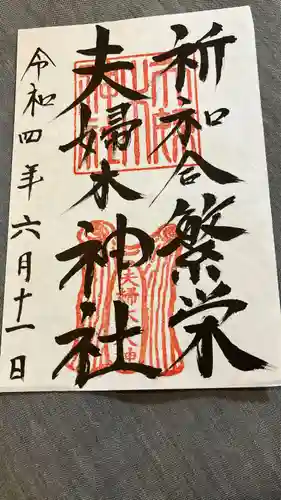 祈和合繁栄
夫婦木神社
令和四年六月十一日
夫婦木大神